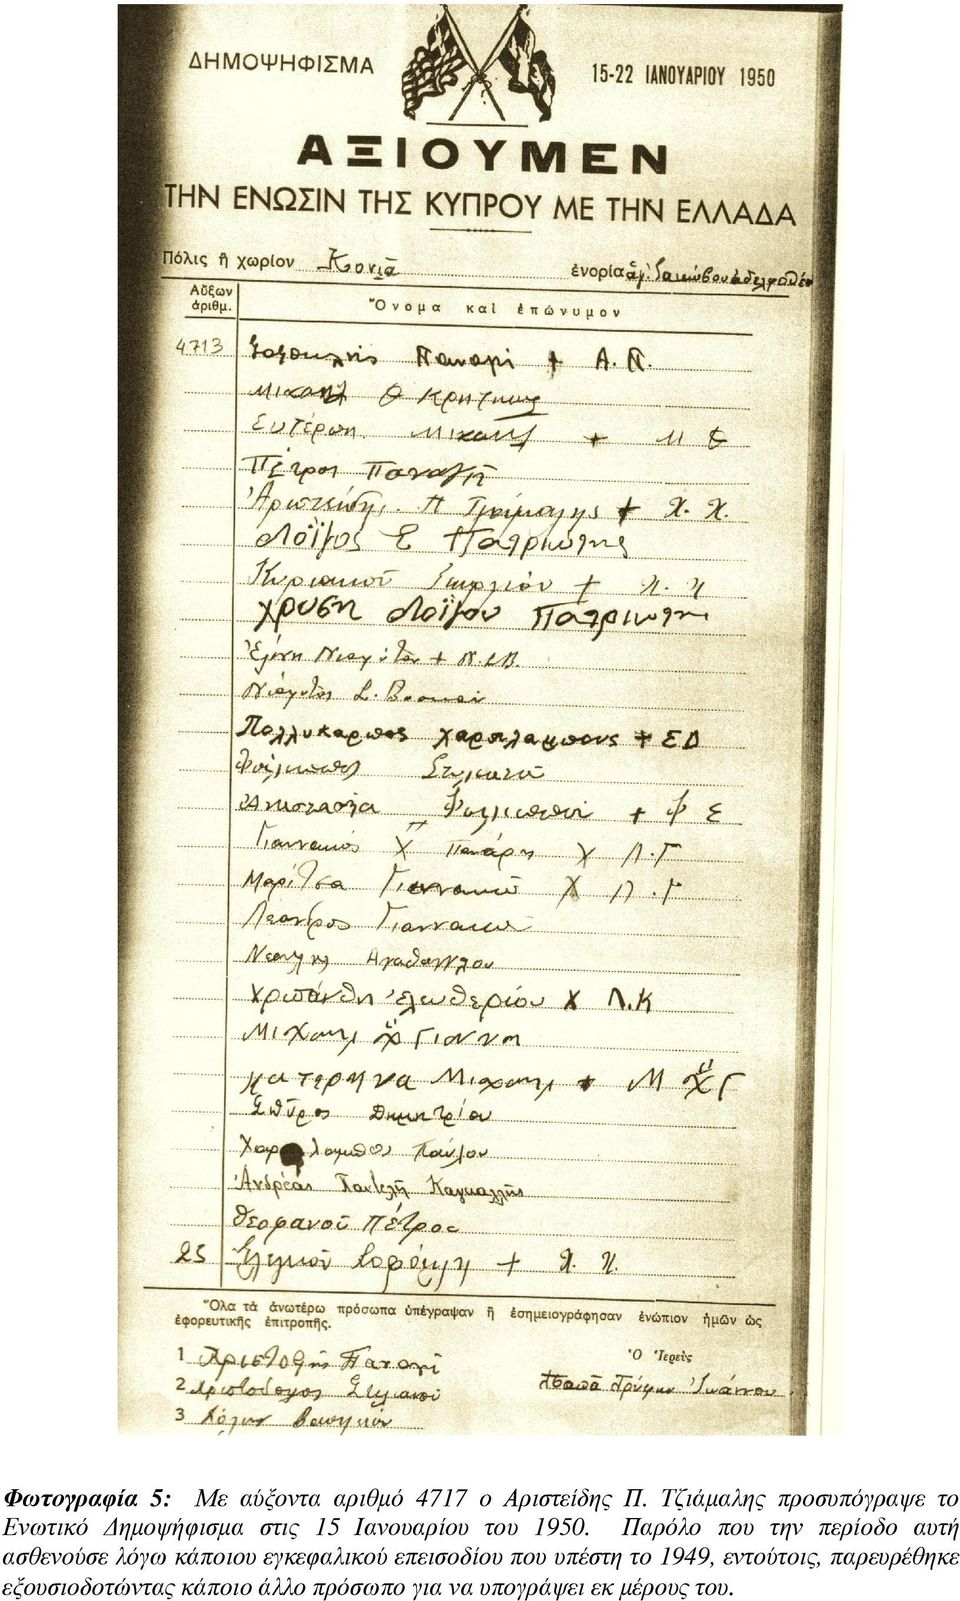 ΔΗΜΟΨΗΦΙΣΜΑ 15-22 ΙΑΝΟΥΑΡΙΟΥ 1950
ΑΞΙΟΥΜΕΝ
ΤΗΝ ΕΝΩΣΙΝ ΤΗΣ ΚΥΠΡΟΥ ΜΕ ΤΗΝ ΕΛΛΑΔΑ
Πόλις ἢ χωρίον Κονιά ἐνορία ἁγ. Ἰακώβου ἀδελφοθέου
Αὔξων
ἀριθμ. Ὄνομα καὶ ἐπώνυμον
4713 Παναγῆ + Α. Π.
Μιχαήλ Θ
Ευτέρπη Μιχαήλ +
Πέτρος Παναγῆ
Ἀριστείδης Π Τζιάμαλης + Χ. Χ.
Λοΐζος Ε Πατριώτης
Κυριακοῦ Γεωργίου +
Χρυσῆ Λοΐζου Πατριώτη
Ἑλένη +
Πολλύκαρπος Χαραλαμπους + ΕΔ
Φίλιππος Στυλιανοῦ
Αναστασία Φιλίππου + Φ Σ
Γιαννακός Χ Παπάρη Χ Π.Γ
Μαρίτσα Γιαννακοῦ Χ Π.Γ
Λεαντρος Γιαννακοῦ
Νεοφυτος Αγαθαγγέλου
Χρυσάνθη Ἐλευθερίου Χ Λ.Κ
Μιχαήλ Χ" Γιαννη
Κατερηνα Μιχαηλ + Μ Χ" Γ
Σπῦρος Δημητρίου
Χαραλαμπου Παύλου
Ἀνδρέας Παντελῆ Καγκαλλῆς
Θεοφανοῦ Πέτρος
25 + Χ. Χ.
Ὅλα τὰ ἀνωτέρω πρόσωπα ὑπέγραψαν ἢ ἐσημειογράφησαν ἐνώπιον ἡμῶν ὡς
ἐφορευτικῆς ἐπιτροπῆς.
1 Ἀριστοτέλης Παναγῆ
Ὁ Ἱερεὺς
2 Χριστόδουλος Στυλιανοῦ Παπᾶ Τρύφων Ἰωάννου
3 Βασιλείου
Φωτογραφία 5: Με αύξοντα αριθμό 4717 ο Αριστείδης Π. Τζιάμαλης προσυπόγραψε το
Ενωτικό Δημοψήφισμα στις 15 Ιανουαρίου του 1950. Παρόλο που την περίοδο αυτή
ασθενούσε λόγω κάποιου εγκεφαλικού επεισοδίου που υπέστη το 1949, εντούτοις, παρευρέθηκε
εξουσιοδοτώντας κάποιο άλλο πρόσωπο για να υπογράψει εκ μέρους του.